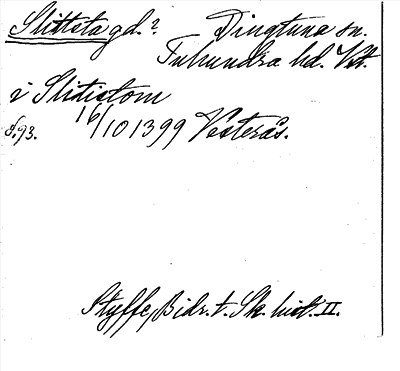 Slittsta gd.? Dingtuna sn.
Tuhundra hd. Vstt.
i Slitistom
s. 93. 16/10 1399 Vesterås.
Styffe, Bidr. t. Sk. hist. II.